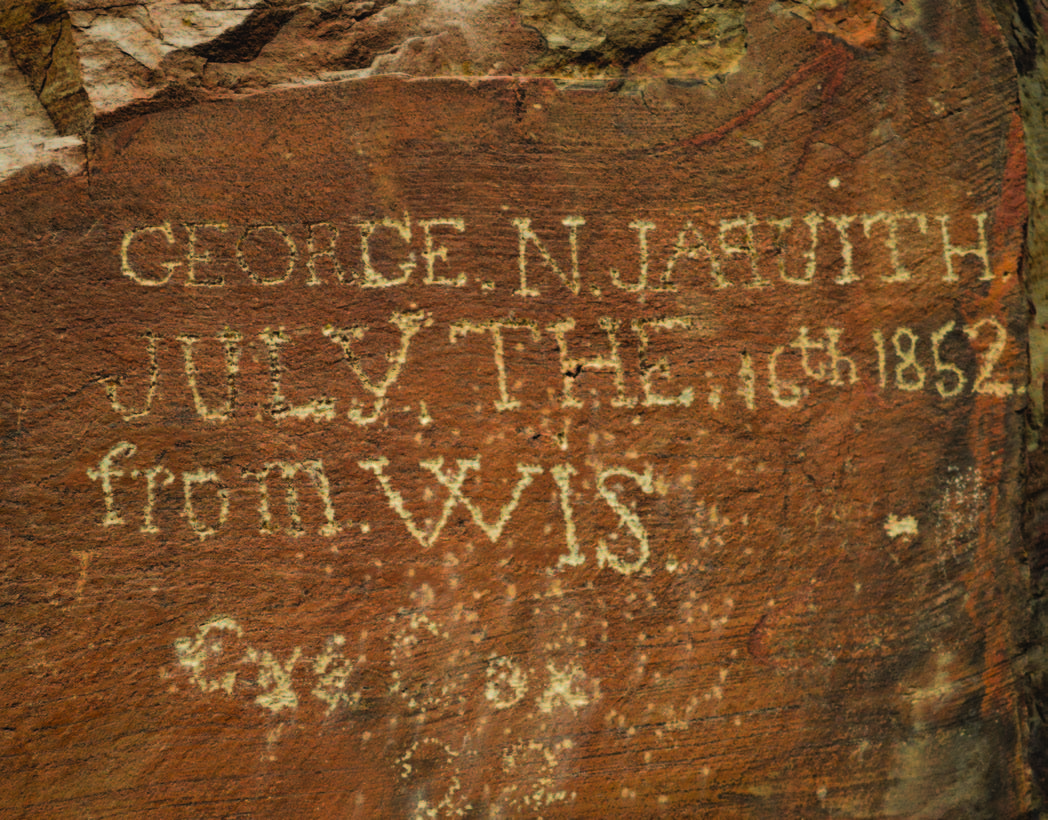 GEORGE. N. JAQUITH
JULY. THE. 16th 1852.
from. WIS.
Cox